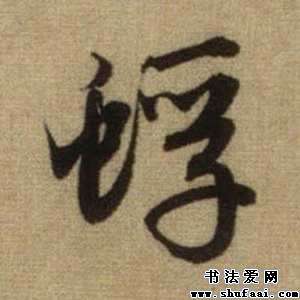 蜉
书法爱网
www.shufaai.com